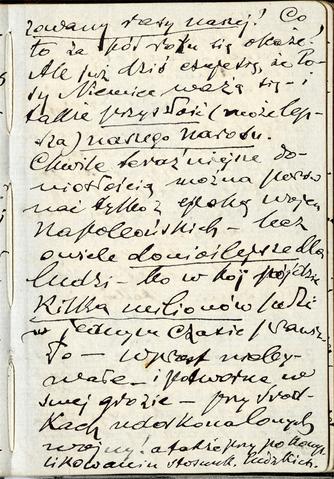 zowany rasy naszej! Co
to za pół roku się okaże!
Ale już dziś czuje się, że lo-
sy Niemiec ważą się – i
także przyszłość (może lep-
sza) naszego narodu.
Chwile teraźniejsze do-
niosłością można porów-
nać tylko z epoką wojen
Napoleońskich – lecz
o wiele donioślejsze dla
ludzi – bo w bój pójdzie
Kilka milionów ludzi
w jednym czasie
to – wprost nieby-
wałe – i potworne w
swej grozie – przy środ-
kach udoskonalonych
wojny! a także przy
likowaniu stosunk. ludzkich.